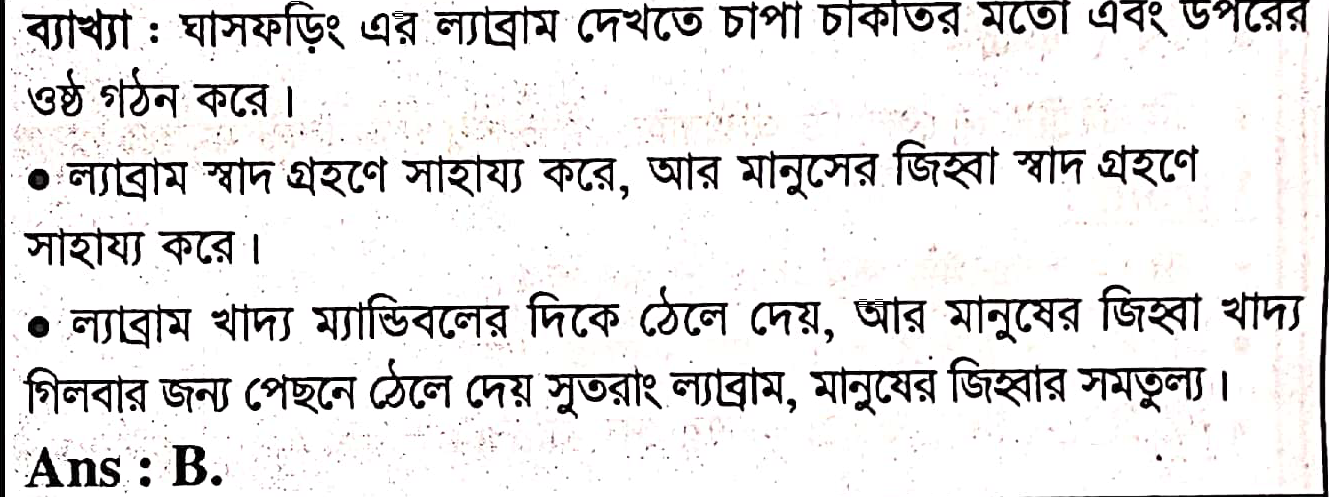 ব্যাখ্যা : ঘাসফড়িং এর ল্যাব্রাম দেখতে চাপা চাকাতির মতো এবং উপরের
ওষ্ঠ গঠন করে।
● ল্যাব্রাম স্বাদ গ্রহণে সাহায্য করে, আর মানুসের জিহ্বা স্বাদ গ্রহণে
সাহায্য করে।
● ল্যাব্রাম খাদ্য ম্যান্ডিবলের দিকে ঠেলে দেয়, আর মানুষের জিহ্বা খাদ্য
গিলবার জন্য পেছনে ঠেলে দেয় সুতরাং ল্যাব্রাম, মানুষের জিহ্বার সমতুল্য।
Ans : B.